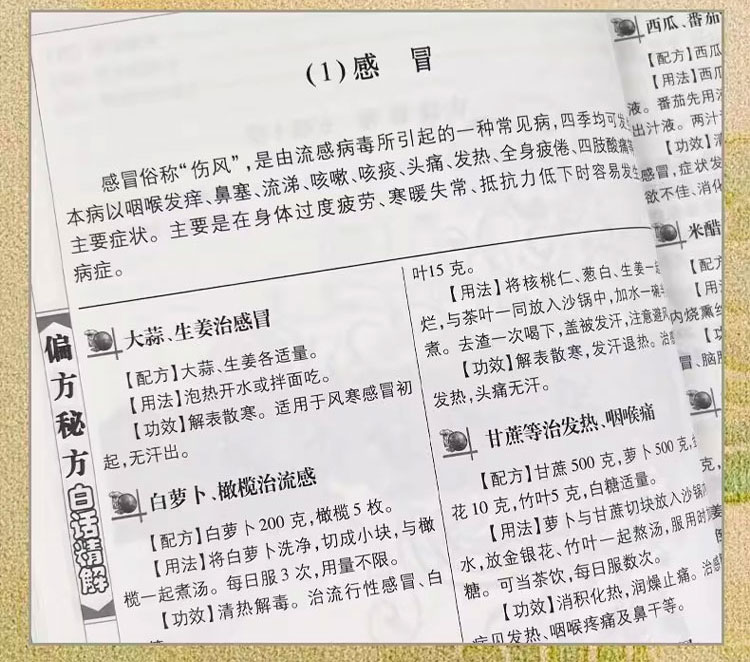 (1)感 冒
感冒俗称“伤风”，是由流感病毒所引起的一种常见病，四季均可发生
本病以咽喉发痒、鼻塞、流涕、咳嗽、咳痰、头痛、发热、全身疲倦、四肢酸痛等
主要症状。主要是在身体过度疲劳、寒暖失常、抵抗力低下时容易发生
病症。
偏方秘方白话精解
大蒜、生姜治感冒
【配方】大蒜、生姜各适量。
【用法】泡热开水或拌面吃。
【功效】解表散寒。适用于风寒感冒初
起,无汗出。
白萝卜、橄榄治流感
【配方】白萝卜200克,橄榄5枚。
【用法】将白萝卜洗净,切成小块,与橄
榄一起煮汤。每日服3次,用量不限。
【功效】清热解毒。治流行性感冒、白
叶15克。
【用法】将核桃仁、葱白、生姜一起
烂,与茶叶一同放入沙锅中,加水一碗半
煮。去渣一次喝下,盖被发汗,注意避风
【功效】解表散寒,发汗退热。治感
发热,头痛无汗。
甘蔗等治发热、咽喉痛
【配方】甘蔗500克,萝卜500克,
花10克,竹叶5克,白糖适量。
【用法】萝卜与甘蔗切块放入沙锅
水,放金银花、竹叶一起熬汤,服用时
糖。可当茶饮,每日服数次。
【功效】消积化热,润燥止痛。治感
症见发热、咽喉疼痛及鼻干等。
西瓜、番茄
【配方】西瓜
【用法】西瓜
液。番茄先用沸
出汁液。两汁
【功效】清
感冒,症状发
欲不佳、消化
米醋
【配方
【用法
内烧熏
【功
冒、脑
克,